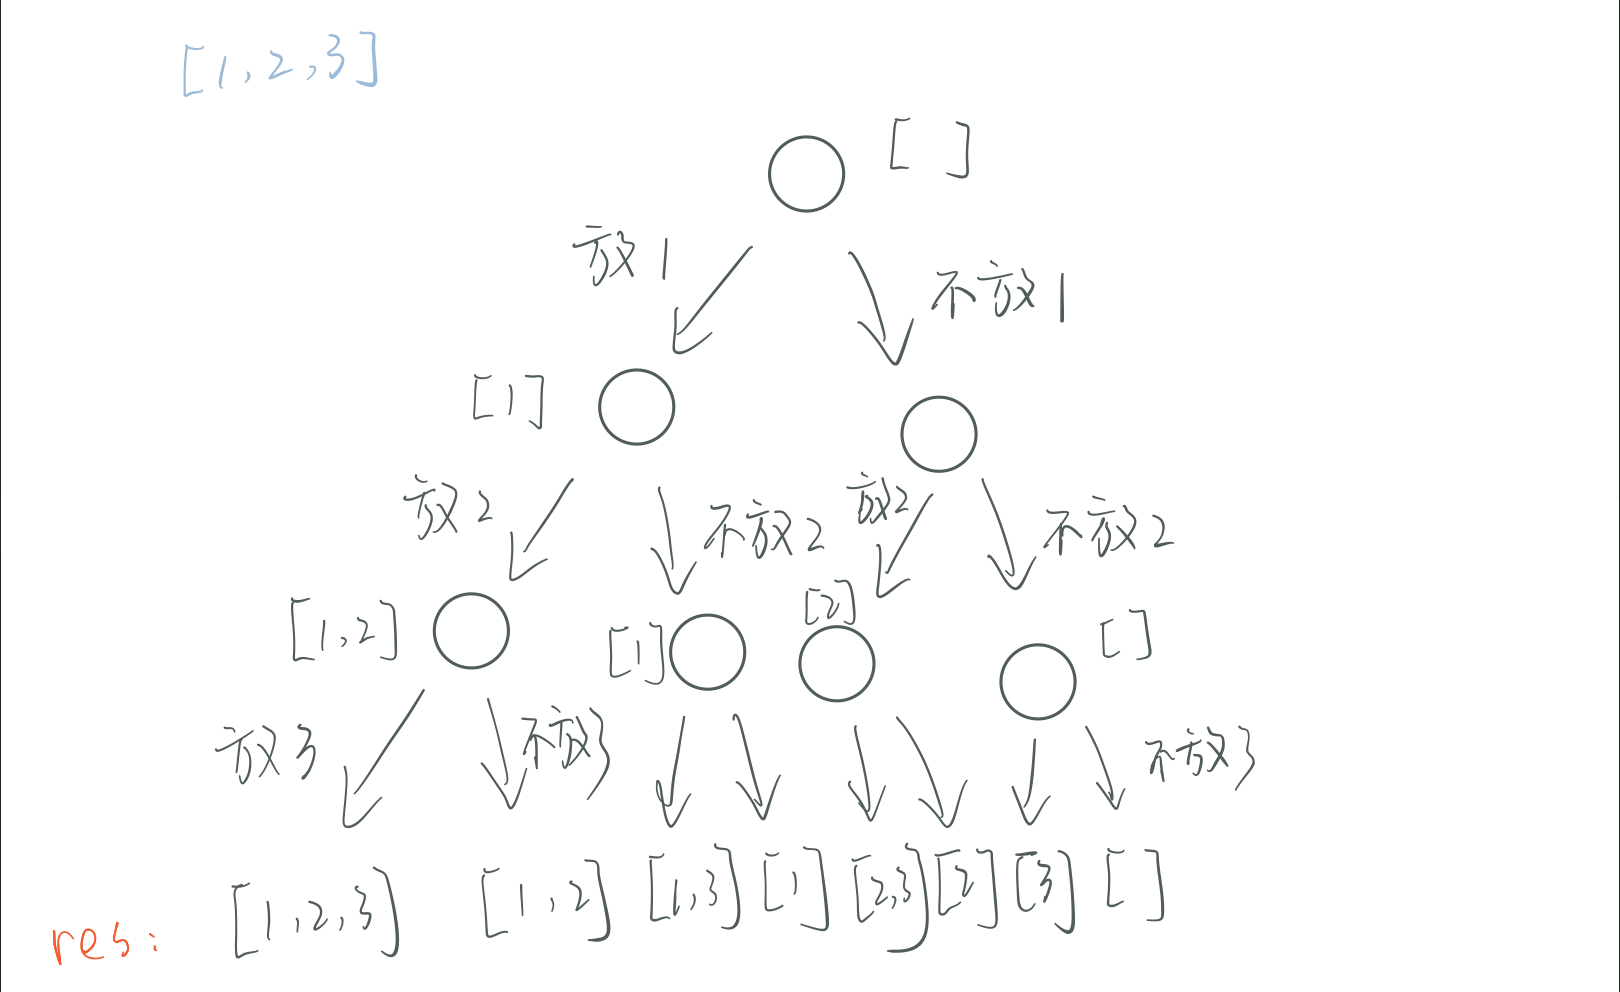 [1,2,3]
[ ]
放1
不放1
[1]
放2
不放2
放2
不放2
[1,2]
[1]
[2]
[ ]
放3
不放3
不放3
res: [1,2,3] [1,2] [1,3] [1] [2,3] [2] [3] [ ]